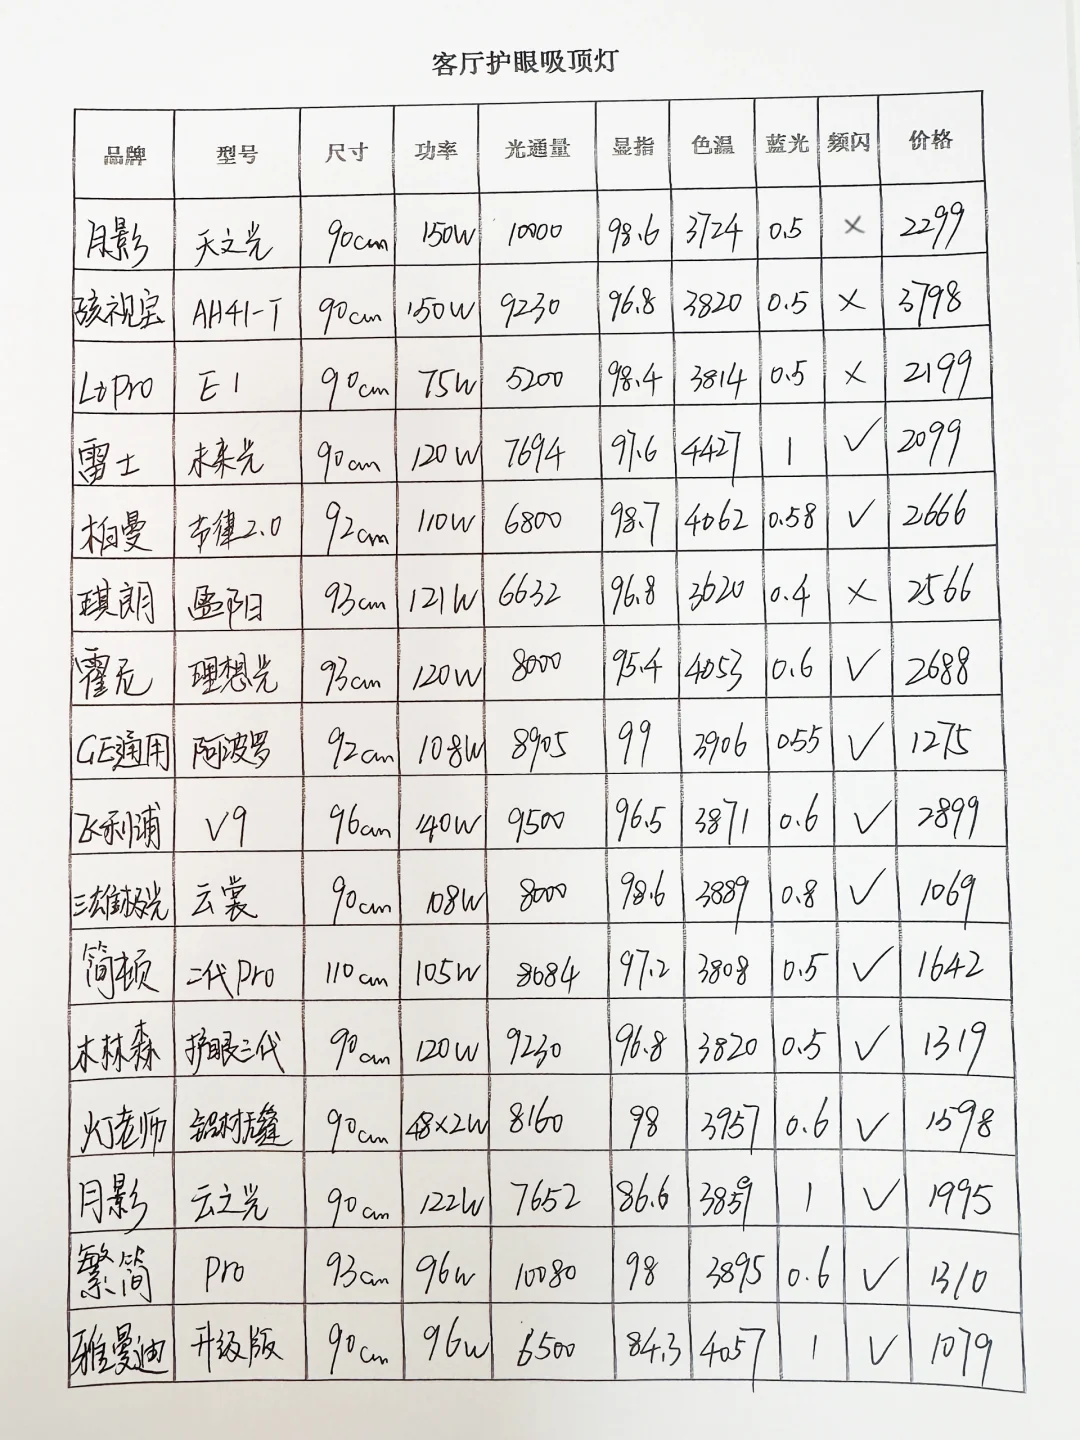 客厅护眼吸顶灯
品牌 型号 尺寸 功率 光通量 显指 色温 蓝光 频闪 价格
月影 天之光 90cm 150W 10000 98.6 3724 0.5 × 2299
孩视宝 AH41-T 90cm 150W 9230 96.8 3820 0.5 × 3798
Lipro E1 90cm 75W 5200 98.4 3814 0.5 × 2199
雷士 未来光 90cm 120W 7694 97.6 4427 1 ✓ 2099
柏曼 节律2.0 92cm 110W 6800 98.7 4062 0.58 ✓ 2666
琪朗 阳 93cm 121W 6632 96.8 3620 0.4 × 2566
霍尼 理想光 93cm 120W 8000 95.4 4053 0.6 ✓ 2688
GE通用 阿波罗 92cm 108W 8905 99 3906 0.55 ✓ 1275
飞利浦 V9 96cm 140W 9500 96.5 3871 0.6 ✓ 2899
三雄极光 云裳 90cm 108W 8000 98.6 3889 0.8 ✓ 1069
简顿 二代Pro 110cm 105W 8684 97.2 3808 0.5 ✓ 1642
木林森 护眼三代 90cm 120W 9230 96.8 3820 0.5 ✓ 1319
灯老师 铝材无缝 90cm 48×2W 8160 98 3957 0.6 ✓ 1598
月影 云之光 90cm 122W 7652 86.6 3859 1 ✓ 1995
繁简 Pro 93cm 96W 10080 98 3895 0.6 ✓ 1310
雅曼迪 升级版 90cm 96W 6500 84.3 4057 1 ✓ 1079